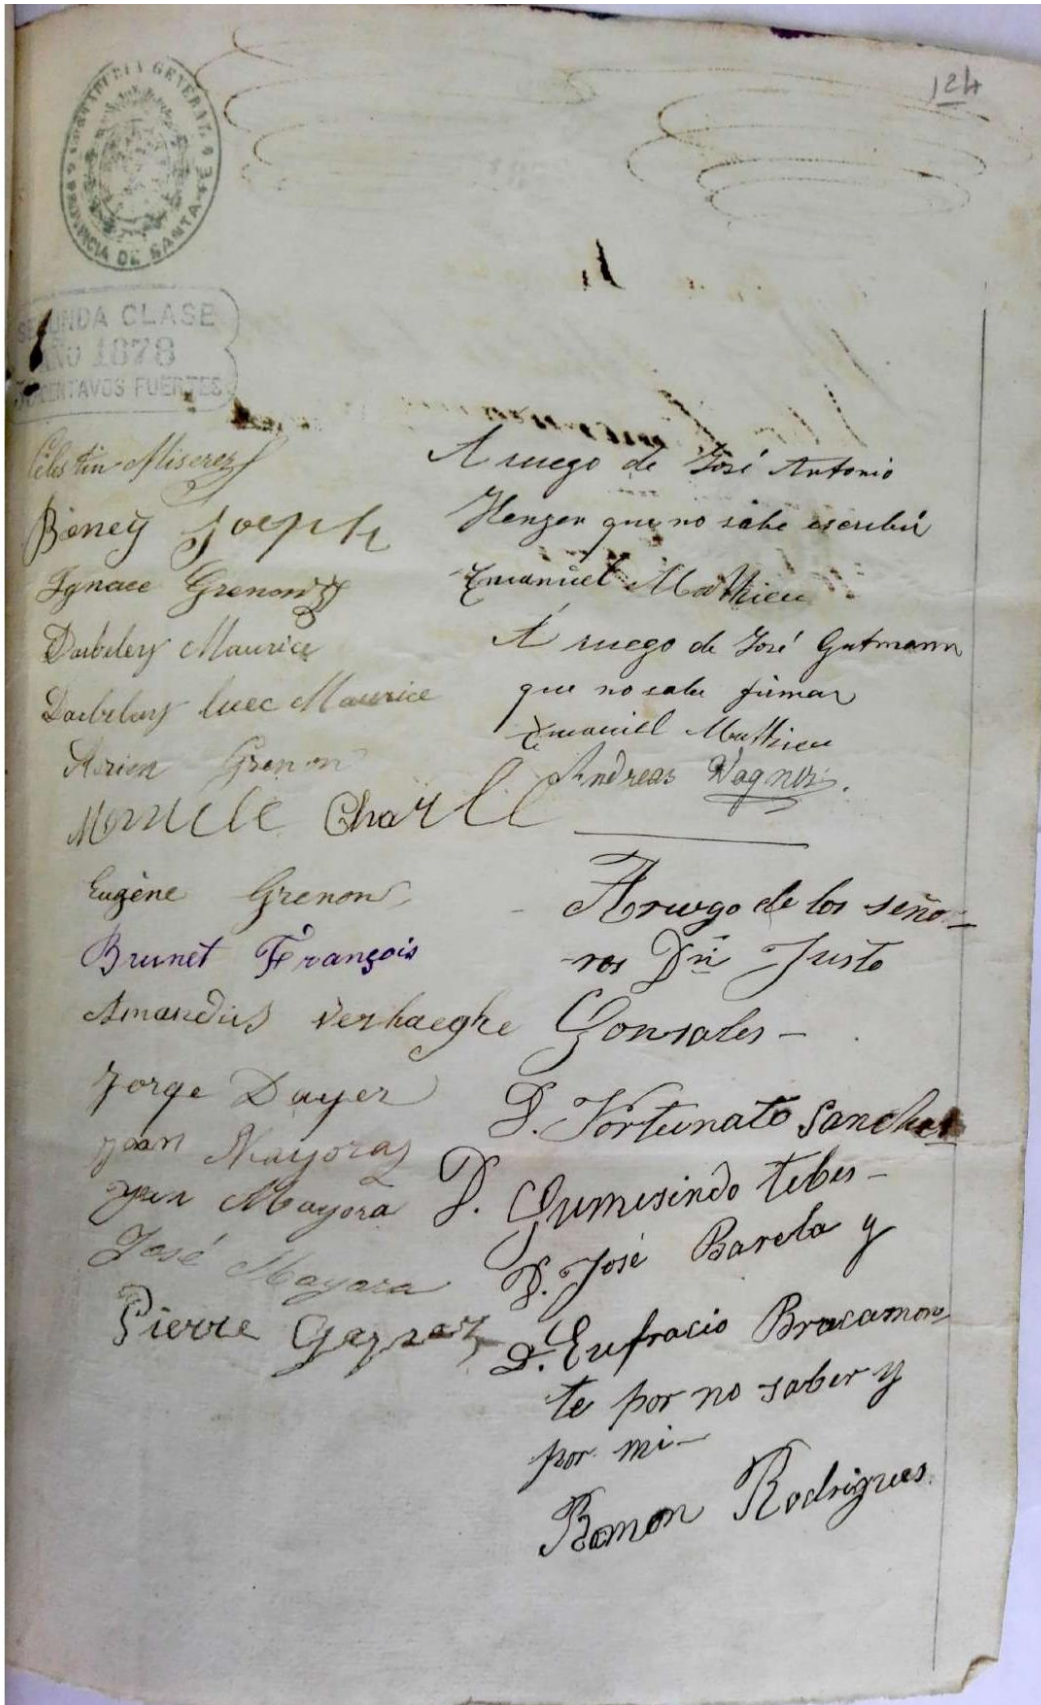 124
CONTADURIA GENERAL
PROVINCIA DE SANTA FE
SEGUNDA CLASE
AÑO 1878
CENTAVOS FUERTES
Célestin Miserez
Boney Joseph
Ignace Grenon
Darbelay Maurice
Darbelay Luec Maurice
Grenon
Charle
Eugène Grenon
Brunet François
Amandus Verhaeghe
Jorge Dayer
Jean Mayoraz
Jean Mayora
José Mayora
Pierre
A ruego de José Antonio
Henzen que no sabe escribir
Emanuel Mathieu
A ruego de José Gutmann
que no sabe firmar
Emanuel Mathieu
Andreas Wagner.
A ruego de los seño-
res Dn Justo
Gonsales -
D. Fortunato Sanches
D. Gumesindo tebes -
D. José Barela y
D. Eufracio Bracamon
te por no saber y
por mi -
Ramon Rodrigues.